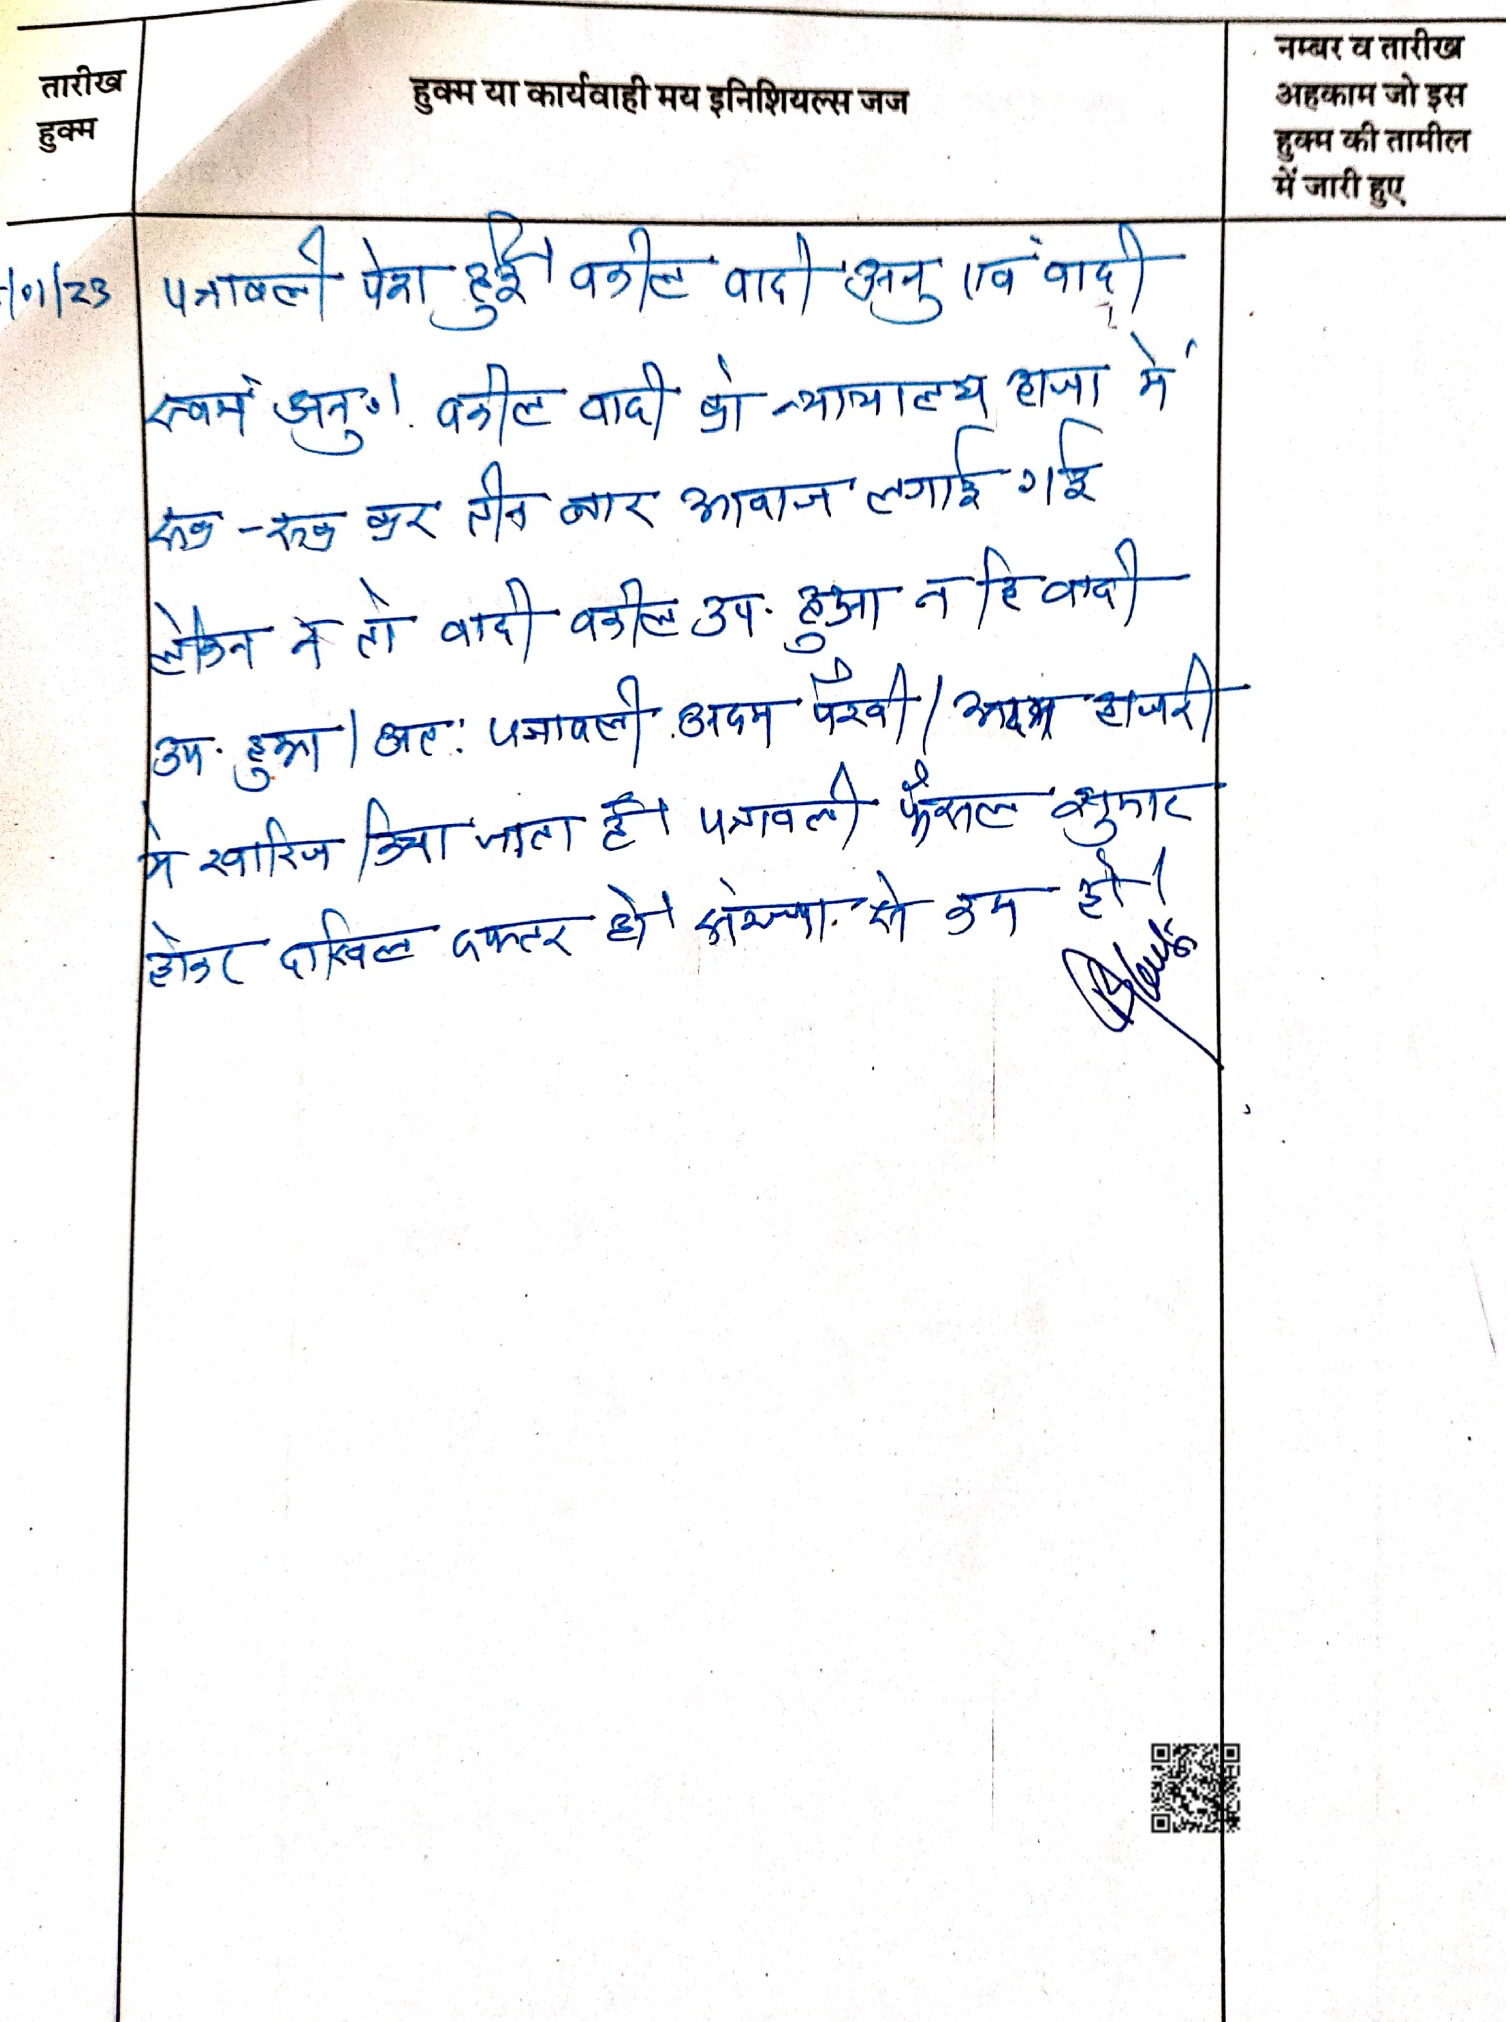 तारीख
हुक्म
हुक्म या कार्यवाही मय इनिशियल्स जज
नम्बर व तारीख
अहकाम जो इस
हुक्म की तामील
में जारी हुए
/01/23
पत्रावली पेश हुई। वकील वादी अनु एवं वादी
स्वयं अनु०। वकील वादी को न्यायालय हाजा में
रूक-रूक कर तीन बार आवाज लगाई गई
लेकिन न तो वादी वकील उप. हुआ न हि वादी
उप. हुआ। अत: पत्रावली अदम पैरवी/अदम हाजरी
मे खारिज किया जाता है। पत्रावली फैसल शुमार
होकर दाखिल दफ्तर हो। से कम हो।